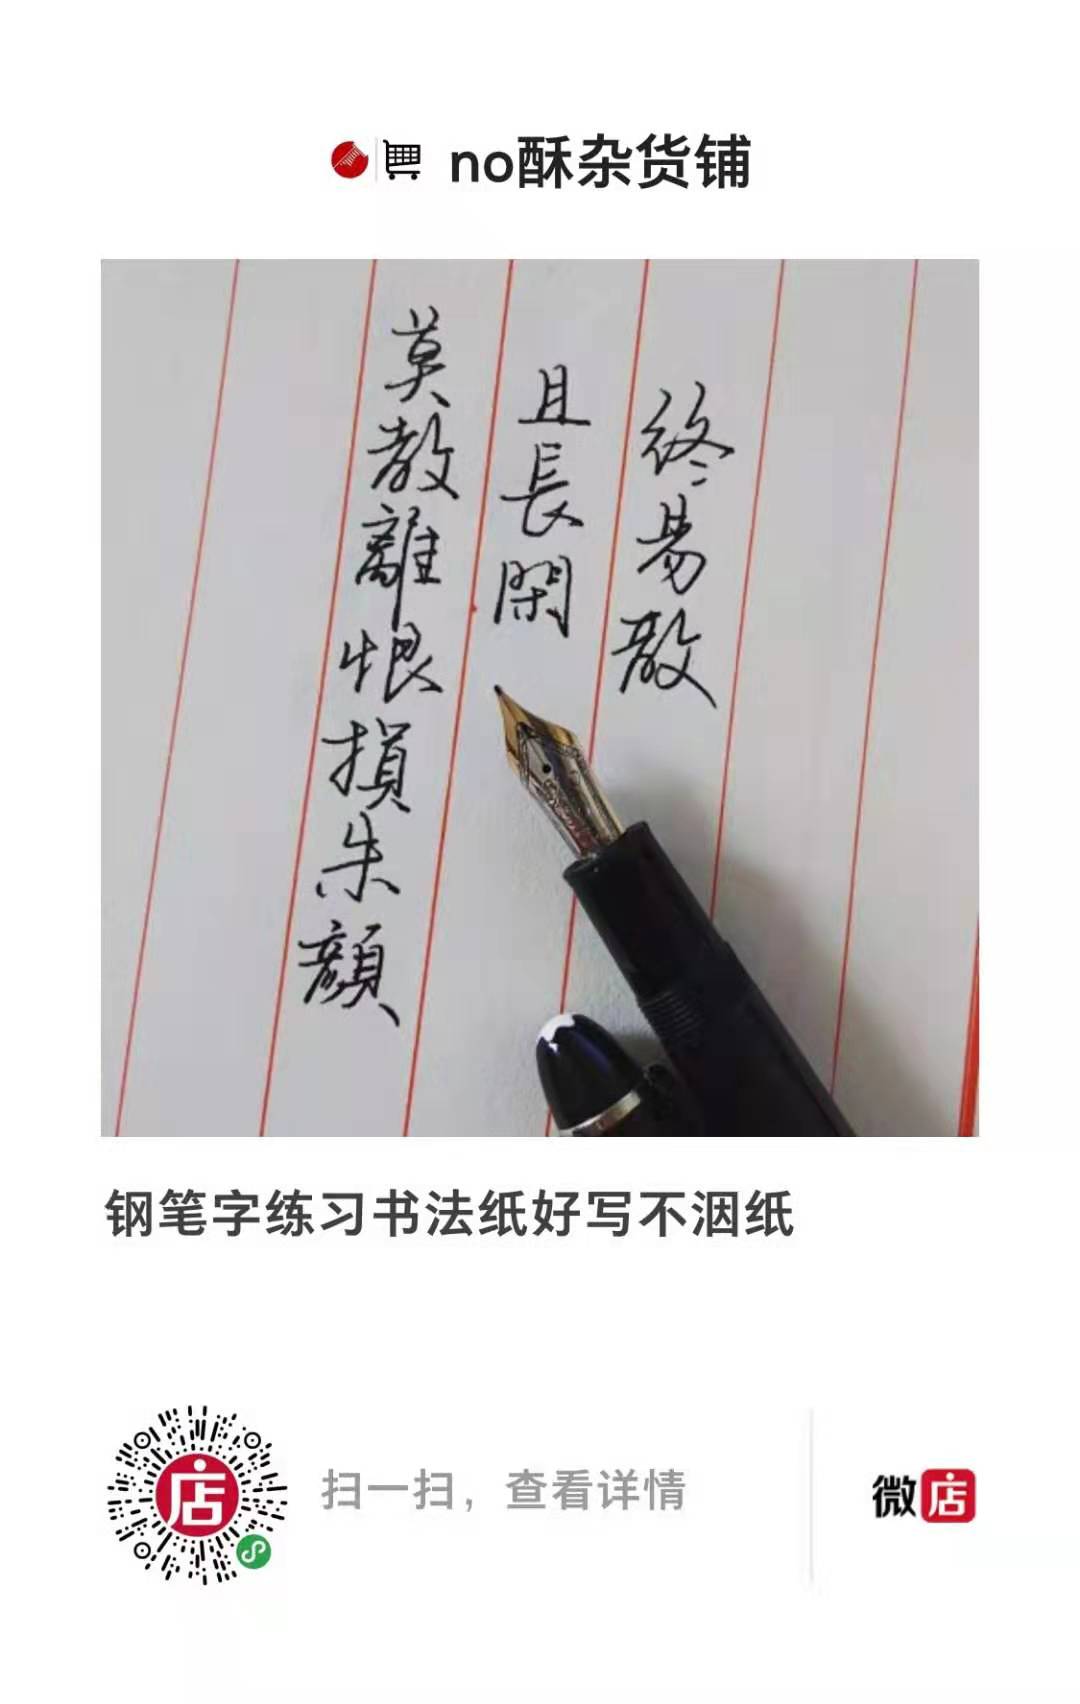 no酥杂货铺
終易散
且長閑
莫教離恨損朱顔
钢笔字练习书法纸好写不洇纸
店
扫一扫，查看详情
微店